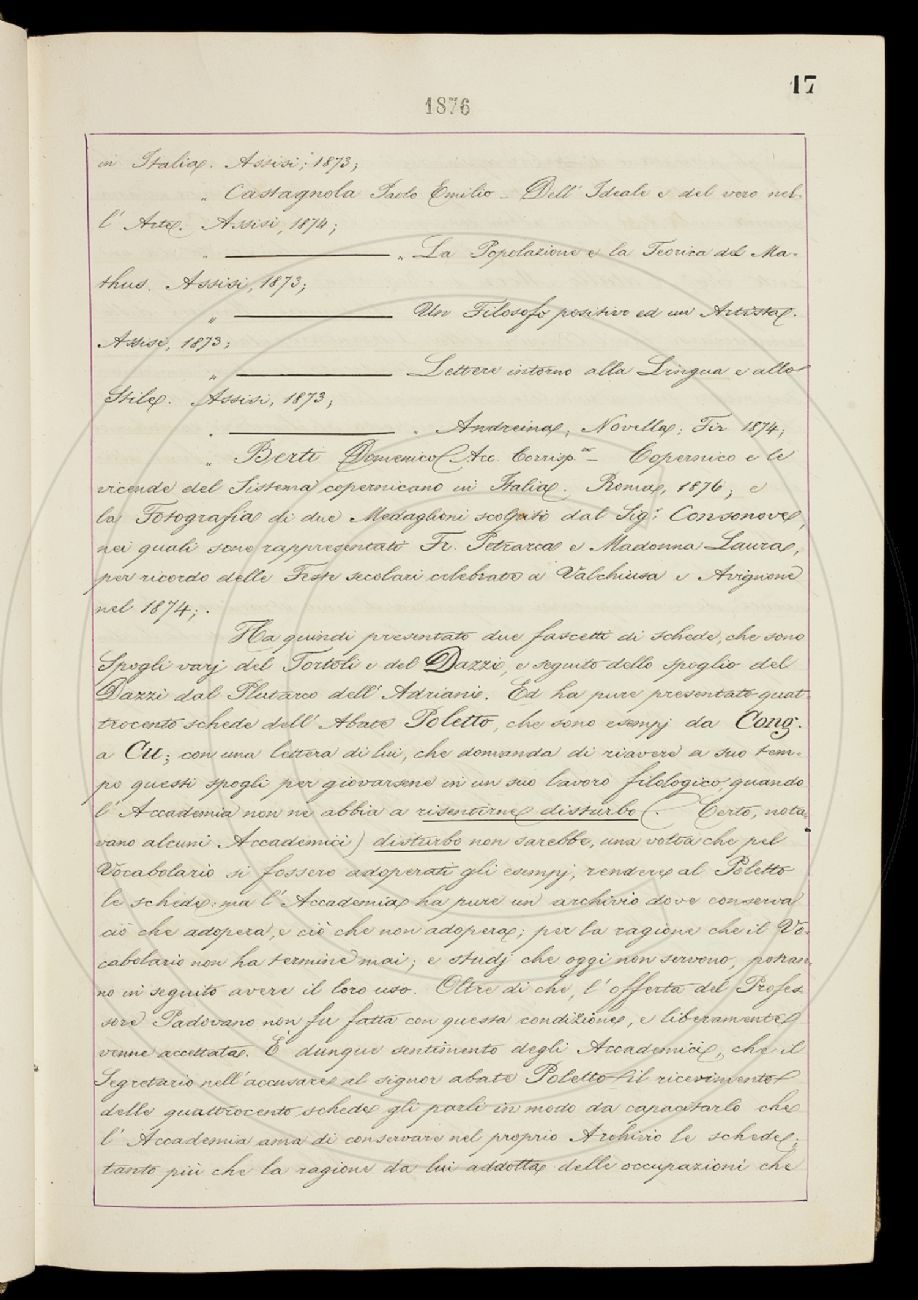 17
1876
in Italia. Assisi, 1873;
„ Castagnola Paolo Emilio – Dell' Ideale e del vero nel-
l' Arte. Assisi, 1874;
„ ——— „ La Popolazione e la Teorica del Ma-
thus. Assisi, 1873;
„ ——— Un Filosofo positivo ed un Artista.
Assisi, 1873;
„ ——— Lettere intorno alla Lingua e allo
Stile. Assisi, 1873;
„ ——— „ Andreina, Novella; Fir. 1874;
„ Berti Domenico Acc. Corrisp.te – Copernico e le
vicende del Sistema copernicano in Italia. Roma, 1876; e
la Fotografia di due Medaglioni scolpiti dal Sig.r Consonove,
nei quali sono rappresentati Fr. Petrarca e Madonna Laura,
per ricordo delle Feste secolari celebrate a Valchiusa e Avignone
nel 1874; .
Ha quindi presentato due fascetti di schede, che sono
Spogli varj del Tortoli e del Dazzi, e seguito dello spoglio del
Dazzi dal Plutarco dell' Adriani. Ed ha pure presentato quat-
trocento schede dell' Abate Poletto, che sono esempj da Cong.
a Cu; con una lettera di lui, che domanda di riavere a suo tem-
po questi spogli per giovarsene in un suo lavoro filologico, quando
l' Accademia non ne abbia a risentirne disturbo (. Certo, nota-
vano alcuni Accademici) disturbo non sarebbe, una volta che pel
Vocabolario si fossero adoperati gli esempj, rendere al Poletto
le schede: ma l' Accademia ha pure un archivio dove conserva
ciò che adopera, e ciò che non adopera; per la ragione che il Vo-
cabolario non ha termine mai; e studj che oggi non servono, potran-
no in seguito avere il loro uso. Oltre di che, l' offerta del Profes-
sore Padovano non fu fatta con questa condizione, e liberamente
venne accettata. È dunque sentimento degli Accademici, che il
Segretario nell' accusare al signor abate Poletto il ricevimento
delle quattrocento schede gli parli in modo da capacitarlo che
l' Accademia ama di conservare nel proprio Archivio le schede;
tanto più che la ragione da lui addotta delle occupazioni che